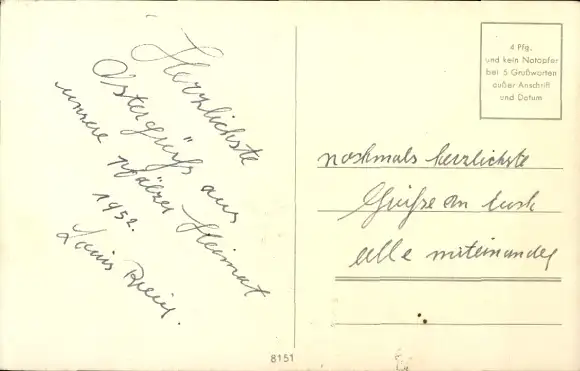 Herzlichste
Ostergrüße aus
unsere pfälzer Heimat
1952.
Louis
4 Pfg.
und kein Notopfer
bei 5 Grußworten
außer Anschrift
und Datum
nochmals herzlichste
Grüße an Euch
alle miteinander
8151